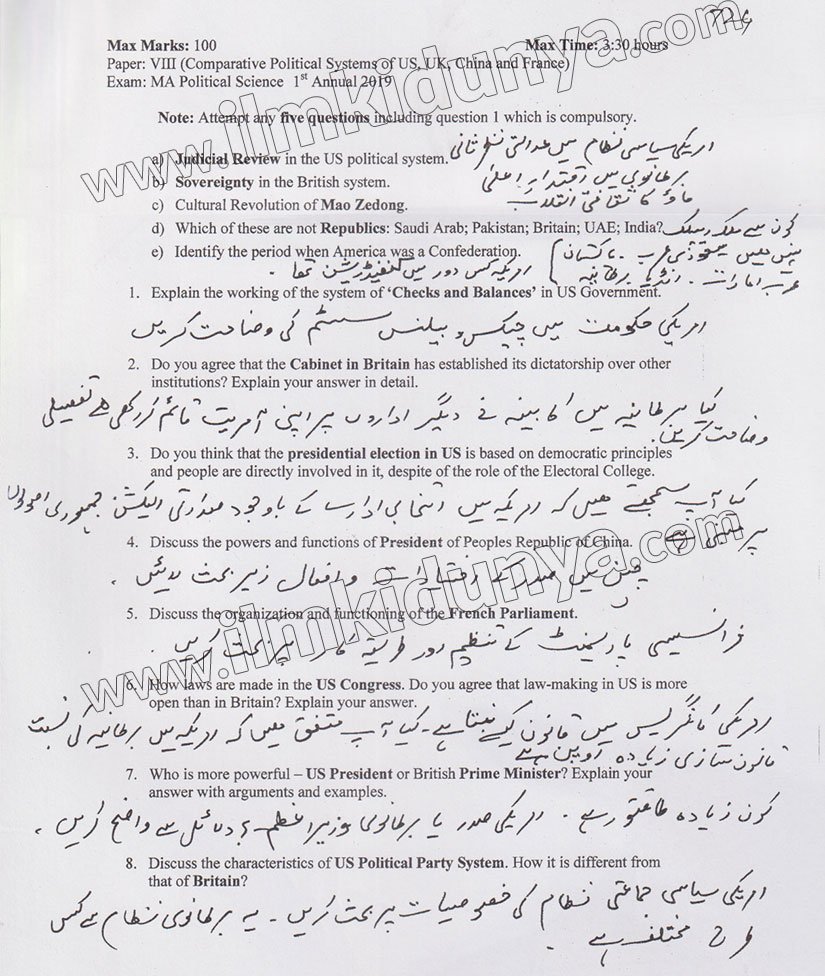 724
Max Marks: 100 Max Time: 3:30 hours
Paper: VIII (Comparative Political Systems of US, UK, China and France)
Exam: MA Political Science 1st Annual 2019
Note: Attempt any five questions including question 1 which is compulsory.
a) Judicial Review in the US political system. امریکی سیاسی نظام میں عدالتی نظر ثانی
b) Sovereignty in the British system. برطانوی میں اقتدار اعلیٰ
c) Cultural Revolution of Mao Zedong. ماؤ کا ثقافتی انقلاب
d) Which of these are not Republics: Saudi Arab; Pakistan; Britain; UAE; India? کون سے ملک ریپبلک
نہیں ہیں سعودی عرب ۔ پاکستان
e) Identify the period when America was a Confederation.
عرب امارات ۔ انڈیا برطانیہ
امریکہ کس دور میں کنفیڈریشن تھا ۔
1. Explain the working of the system of ‘Checks and Balances’ in US Government.
امریکی حکومت میں چیکس و بیلنس سسٹم کی وضاحت کریں
2. Do you agree that the Cabinet in Britain has established its dictatorship over other
institutions? Explain your answer in detail.
کیا برطانیہ میں کابینہ نے دیگر اداروں پر اپنی آمریت قائم کر رکھی ہے تفصیلی
وضاحت کریں.
3. Do you think that the presidential election in US is based on democratic principles
and people are directly involved in it, despite of the role of the Electoral College.
کیا آپ سمجھتے ہیں کہ امریکہ میں انتخابی ادارے کے باوجود صدارتی الیکشن جمہوری اصولوں
پر مبنی ہے
4. Discuss the powers and functions of President of Peoples Republic of China.
چین میں صدر کے اختیارات و افعال زیر بحث لائیں ۔
5. Discuss the organization and functioning of the French Parliament.
فرانسیسی پارلیمنٹ کے تنظیم اور طریقہ کار پر بحث کریں ۔
6. How laws are made in the US Congress. Do you agree that law-making in US is more
open than in Britain? Explain your answer.
امریکی کانگریس میں قانون کیسے بنتا ہے ۔ کیا آپ متفق ہیں کہ امریکہ میں برطانیہ کی نسبت
قانون سازی زیادہ اوپن ہے
7. Who is more powerful – US President or British Prime Minister? Explain your
answer with arguments and examples.
کون زیادہ طاقتور ہے ۔ امریکی صدر یا برطانوی وزیراعظم ؟ دلائل سے واضح کریں ۔
8. Discuss the characteristics of US Political Party System. How it is different from
that of Britain?
امریکی سیاسی جماعتی نظام کی خصوصیات پر بحث کریں ۔ یہ برطانوی نظام سے کس
طرح مختلف ہے ۔
www.ilmkidunya.com
www.ilmkidunya.com